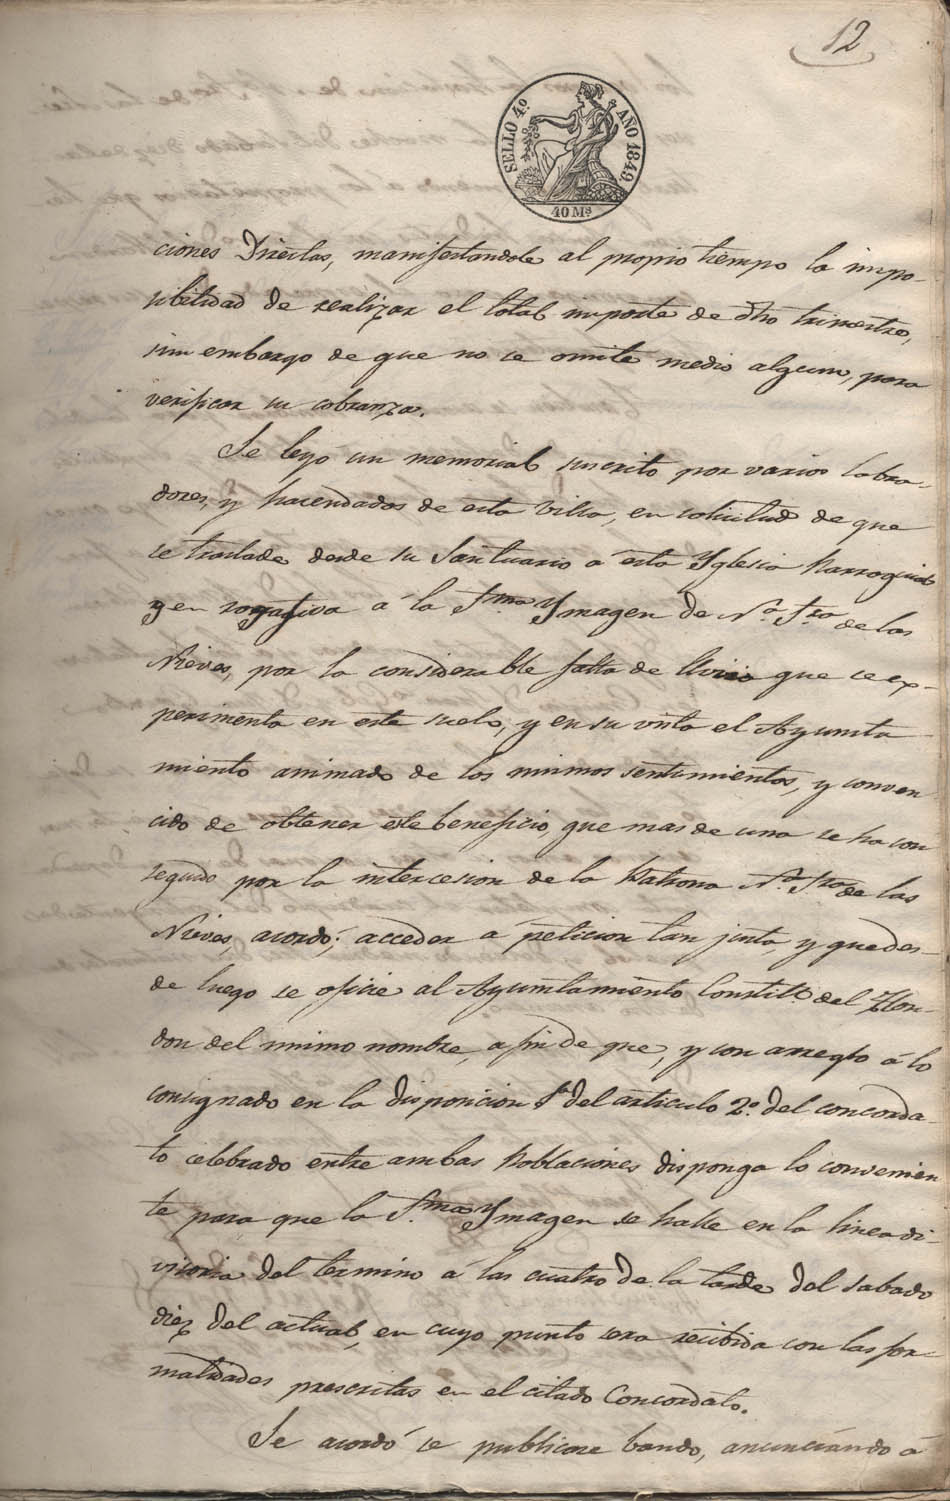 12
SELLO 4.º AÑO 1849.
40 Mˢ
ciones Directas, manifestandole al propio tiempo la impo-
sibilidad de realizar el total importe de dho trimestre,
sin embargo de que no se omite medio alguno, para
verificar su cobranza.
Se leyó un memorial suscrito por varios labra-
dores, y hacendados de esta Villa, en solicitud de que
se traslade desde su Santuario á esta Yglesia Parroquial
y en rogativa á la Sma Ymagen de Nª Sra de las
Nieves, por la considerable falta de lluvia que se ex-
perimenta en este suelo, y en su vista el Ayunta
miento animado de los mismos sentimientos, y conven
cido de obtener este beneficio, que mas de una se ha con
seguido por la intercesion de la Patrona Nª Sra de las
Nieves, acordó: acceder á peticion tan justa, y que des-
de luego se oficie al Ayuntamiento Constitl. del Hon-
don del mismo nombre, a fin de que, y con arreglo á lo
consignado en la disposicion 1ª del articulo 2º. del concorda-
to celebrado entre ambas Poblaciones disponga lo convenien
te para que la Sma Ymagen se halle en la linea di-
visoria del termino á las cuatro de la tarde del sabado
diez del actual, en cuyo punto sera recibida con las for-
malidades prescritas en el citado Concordato.
Se acordó se publicase bando, anunciando á